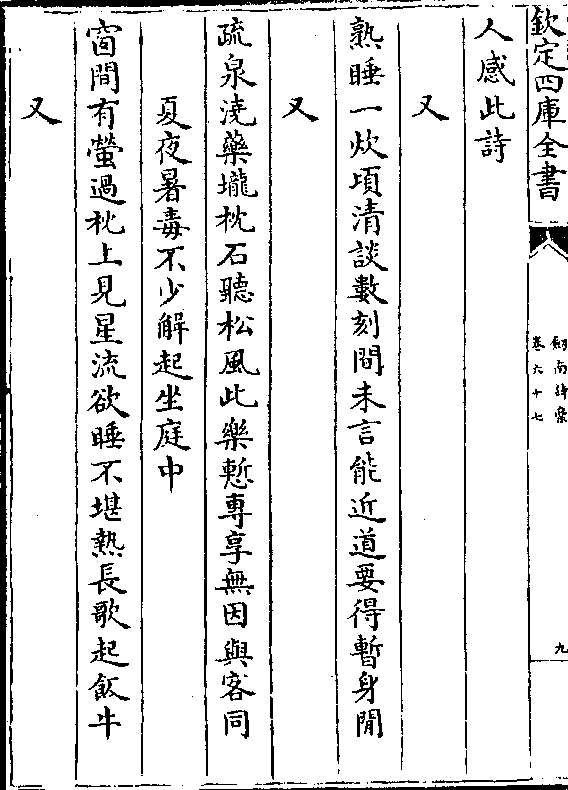 欽定四庫全書
劍南詩稾
卷六十七
九
人感此詩
又
熟睡一炊頃清談數刻間未言能近道要得暫身閒
又
疏泉澆藥壠枕石聽松風此樂慙專享無因與客同
夏夜暑毒不少解起坐庭中
窗間有螢過枕上見星流欲睡不堪熱長歌起飯牛
又